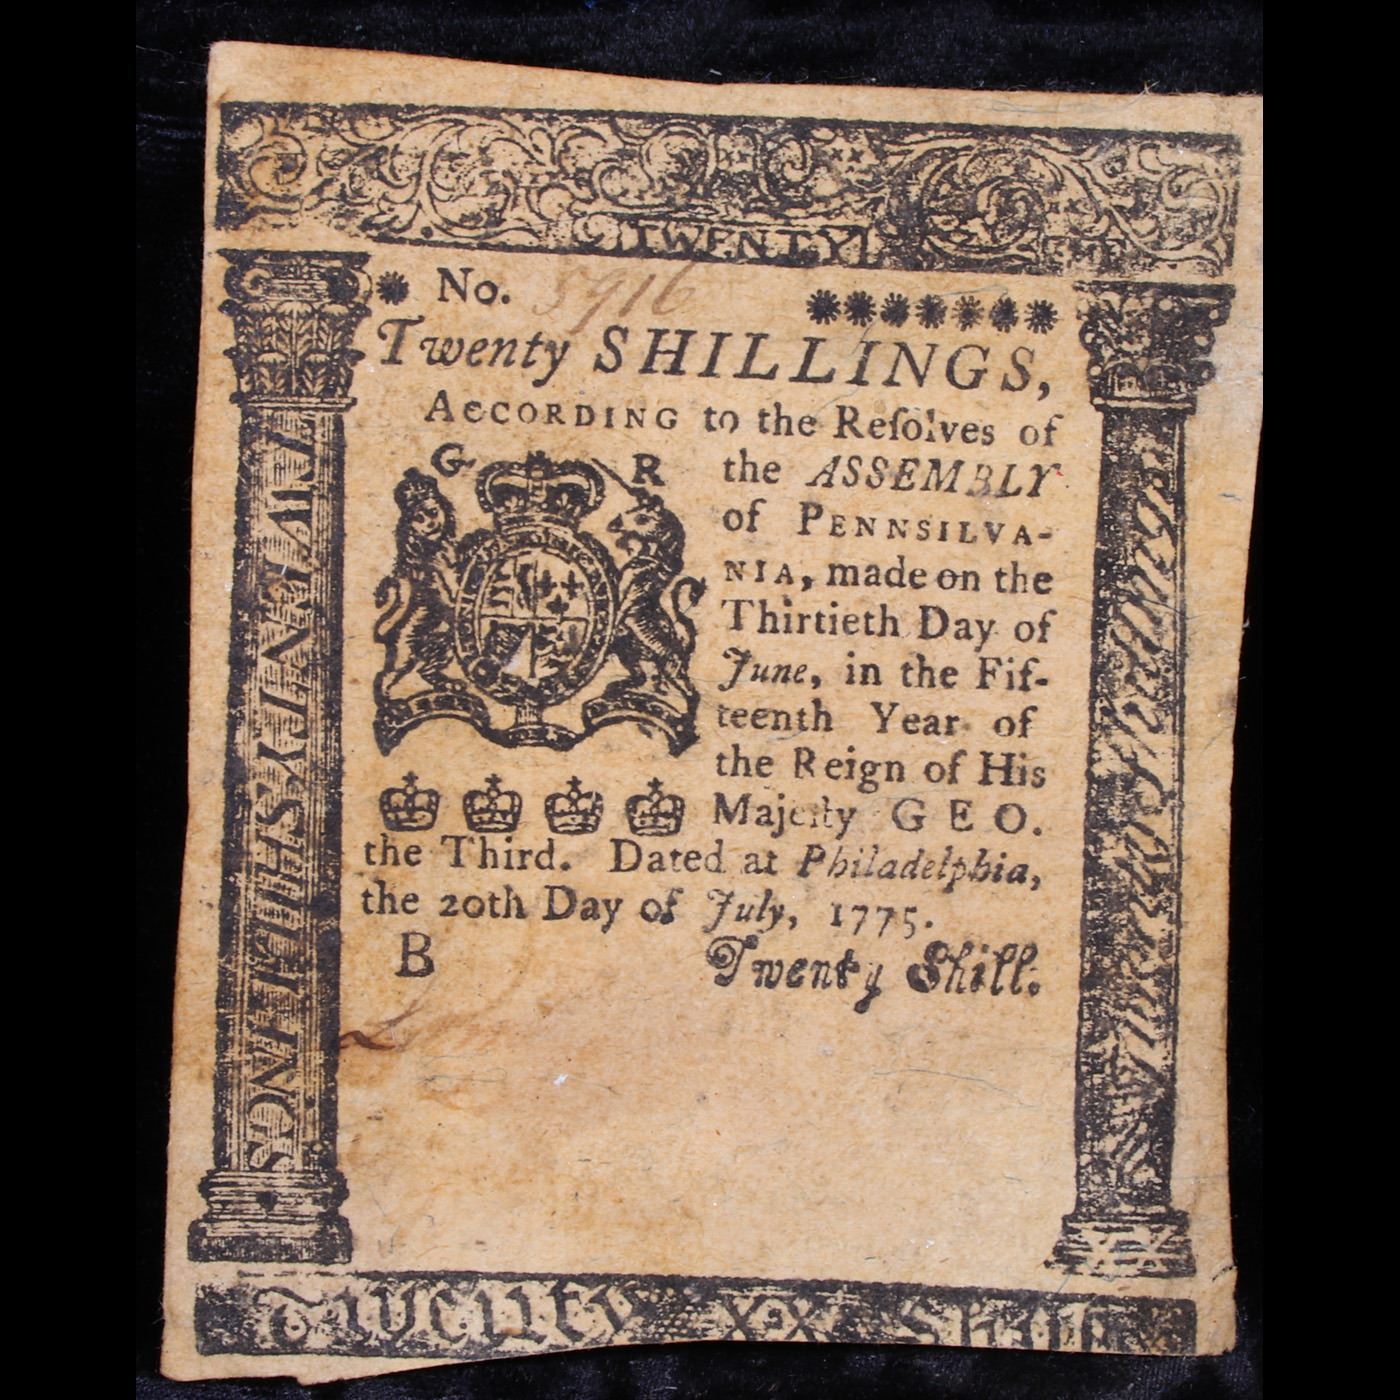 TWENTY
No. 5916
Twenty SHILLINGS,
ACCORDING to the Reſolves of
G R the ASSEMBLY
of PENNSILVA-
NIA, made on the
Thirtieth Day of
June, in the Fif-
teenth Year of
the Reign of His
Majeſty GEO.
the Third. Dated at Philadelphia,
the 20th Day of July, 1775.
B Twenty Shill.
TWENTY SHILLINGS
Twenty XX Shill